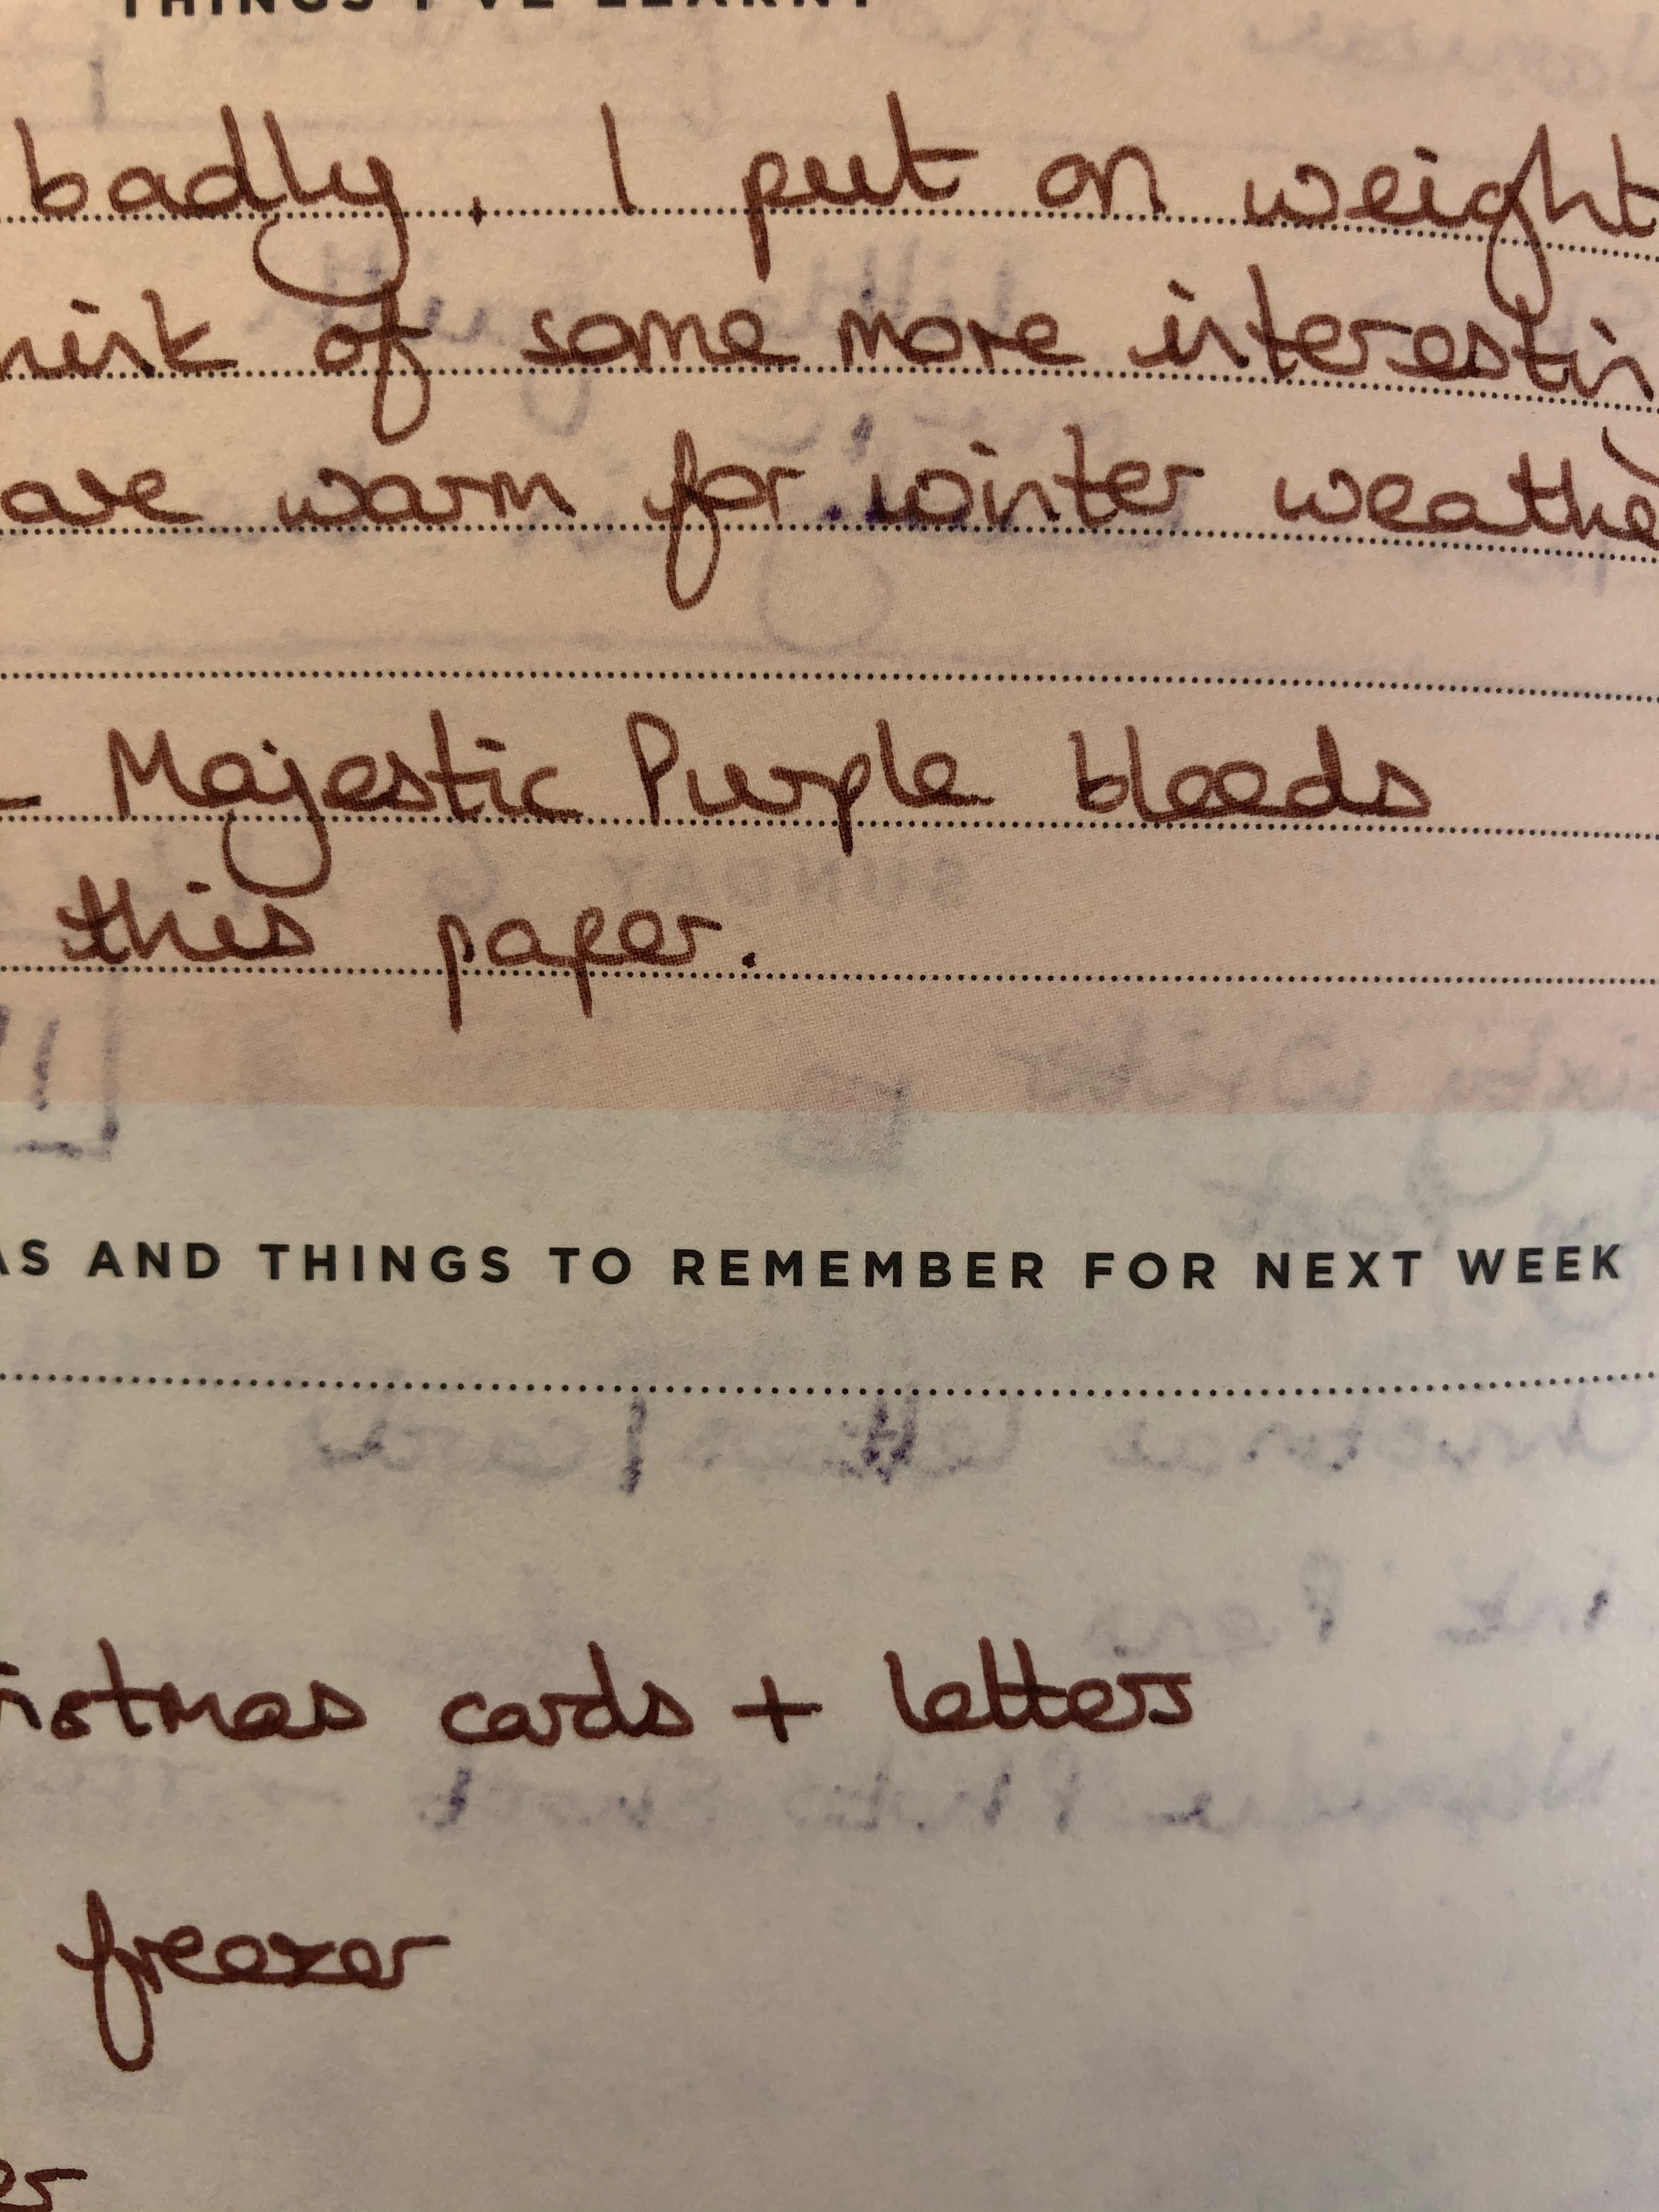 THINGS I'VE LEARNT
badly. I put on weight
of some more interestin
are warm for winter weathe
- Majestic Purple bleeds
this paper.
AS AND THINGS TO REMEMBER FOR NEXT WEEK
istmas cards + letters
freezer
er